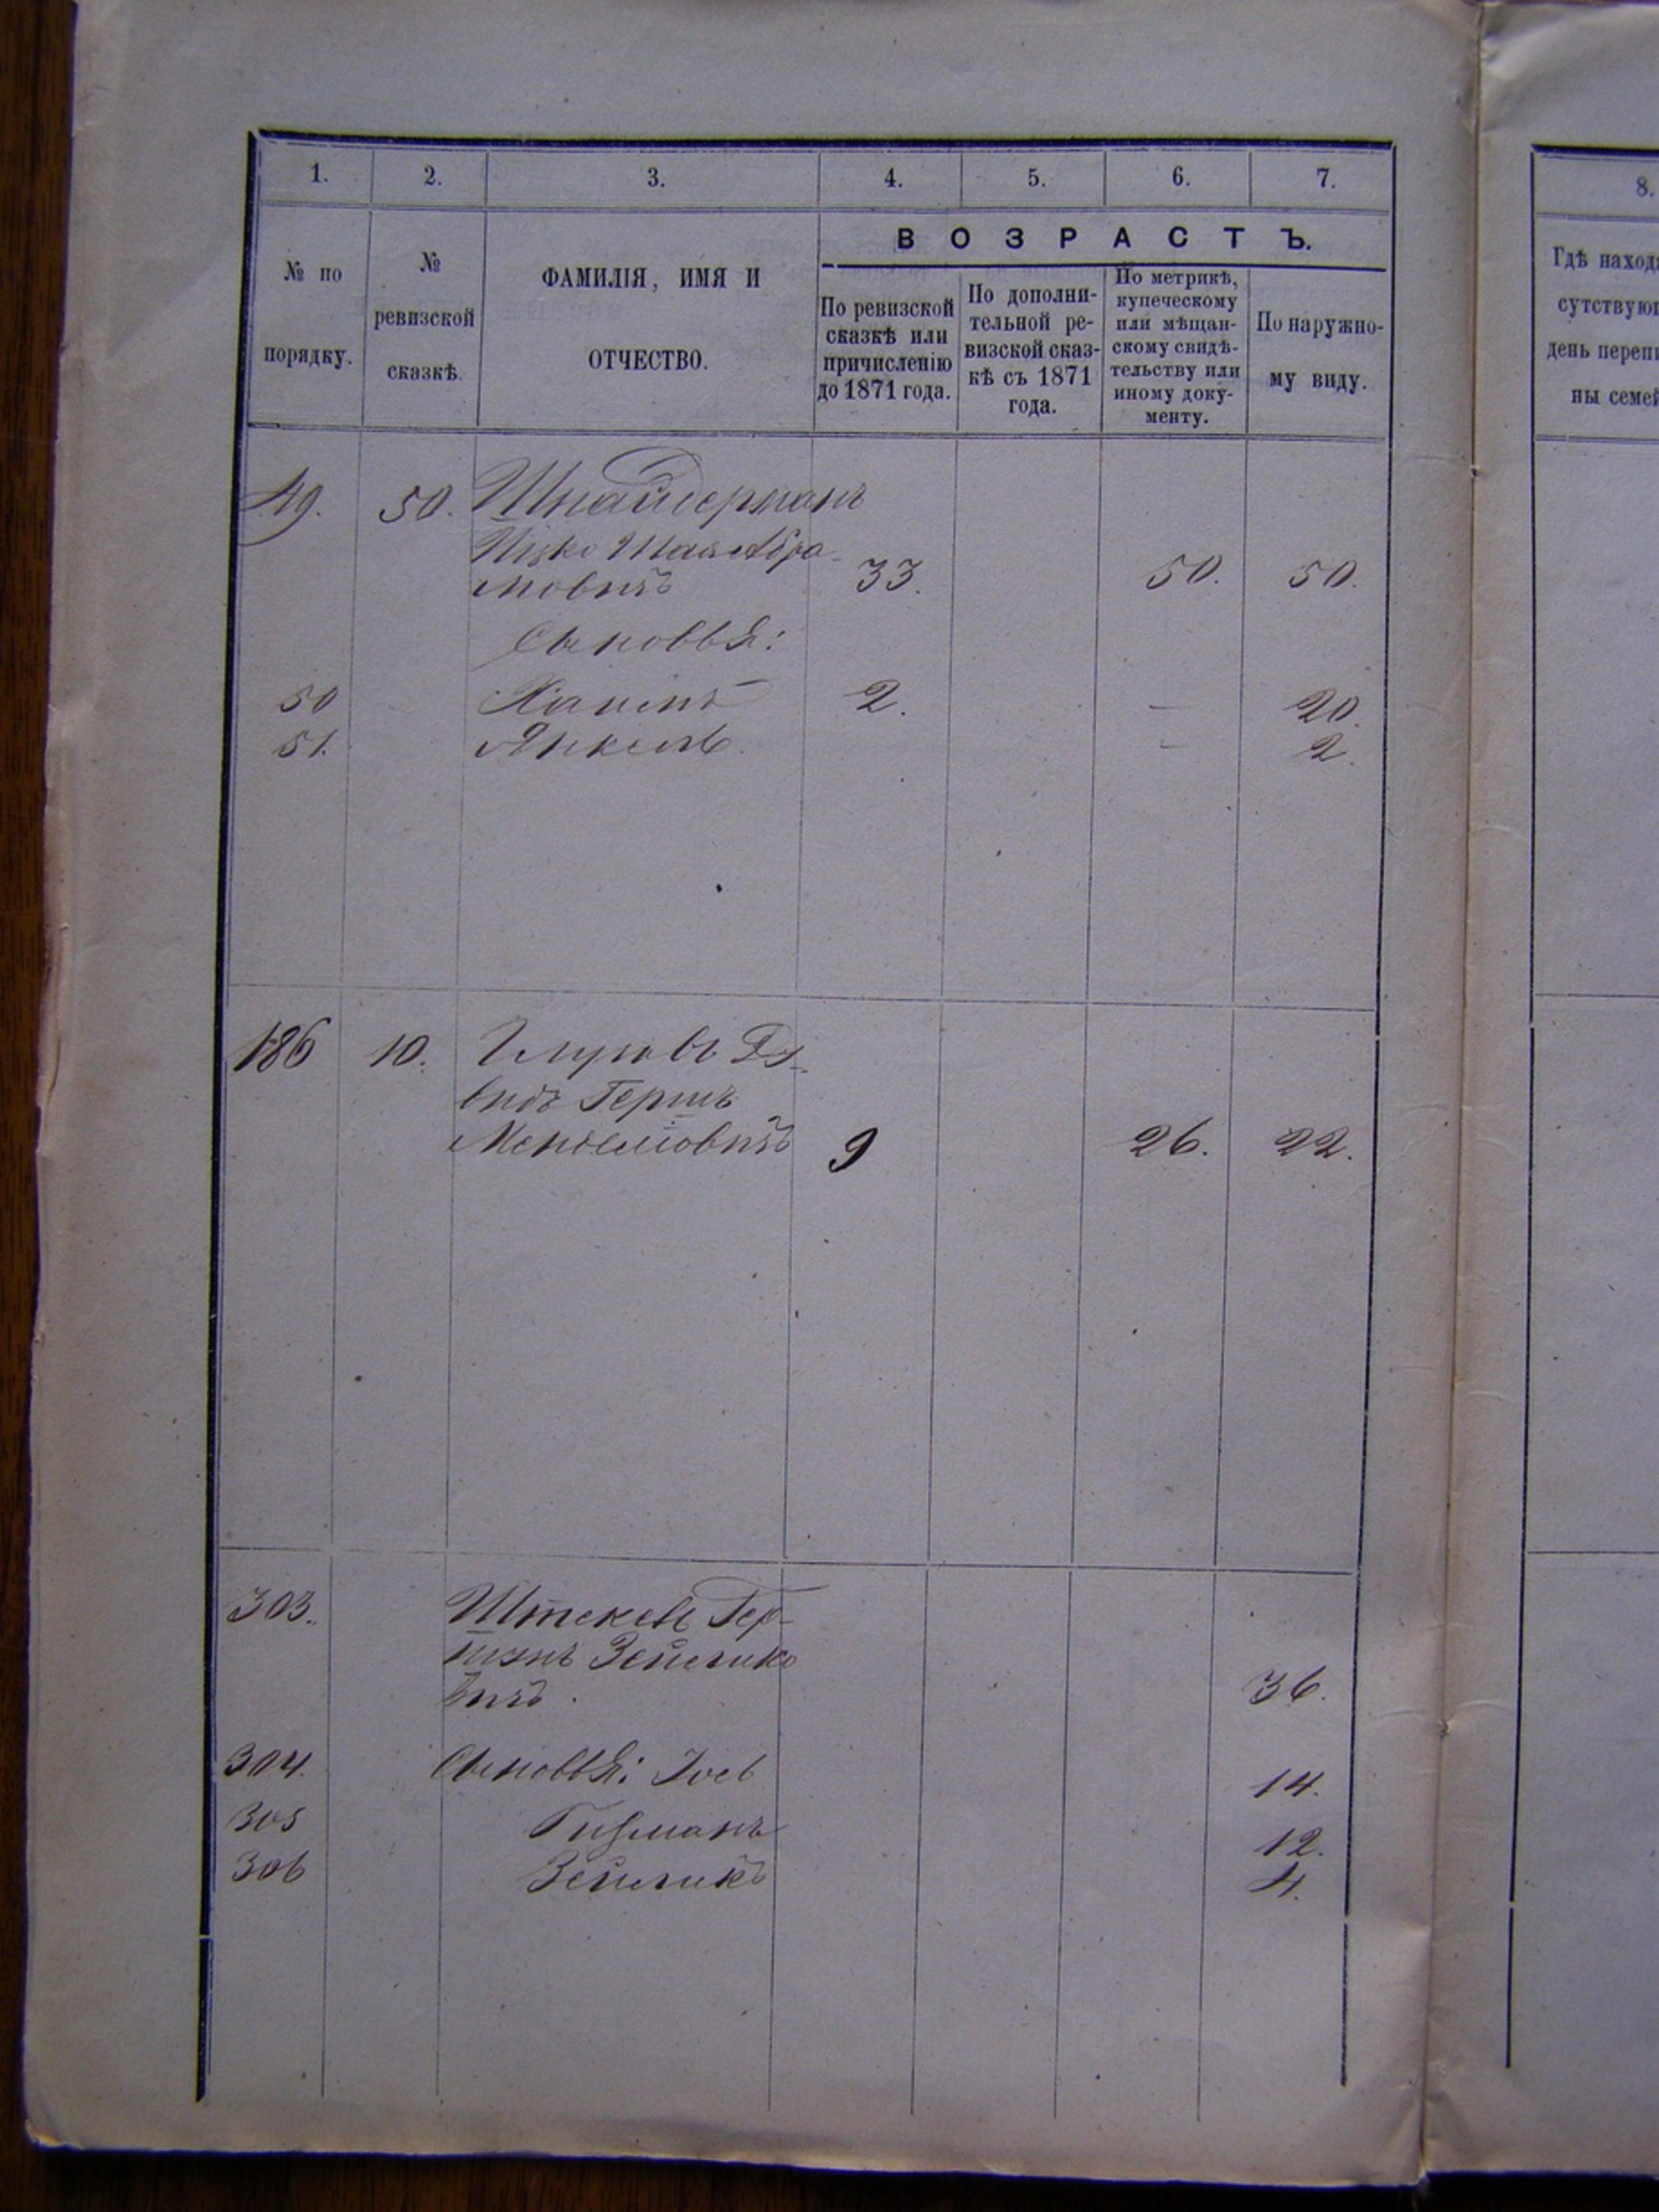 1. 2. 3. 4. 5. 6. 7.
ВОЗРАСТЪ.
№ по
порядку.
№
ревизской
сказкѣ.
ФАМИЛІЯ, ИМЯ И
ОТЧЕСТВО.
По ревизской
сказкѣ или
причисленію
до 1871 года.
По дополни-
тельной ре-
визской сказ-
кѣ съ 1871
года.
По метрикѣ,
купеческому
или мѣщан-
скому свидѣ-
тельству или
иному доку-
менту.
По наружно-
му виду.
49. 50. Шнайдерманъ
Ицко Шая Абра-
мовичъ 33. 50. 50.
Сыновья:
50 Хаимъ 2. — 20.
51. Янкель. — 2.
186 10. Да-
видъ Гершъ
Менделіовичъ 9 26. 22.
303. Штекель Гер-
Зейлико
вичъ. 36.
304. Сыновья: Іось 14.
305 12.
306 Зейликъ 4.
8.
Гдѣ наход
сутствую
день переп
ны семей